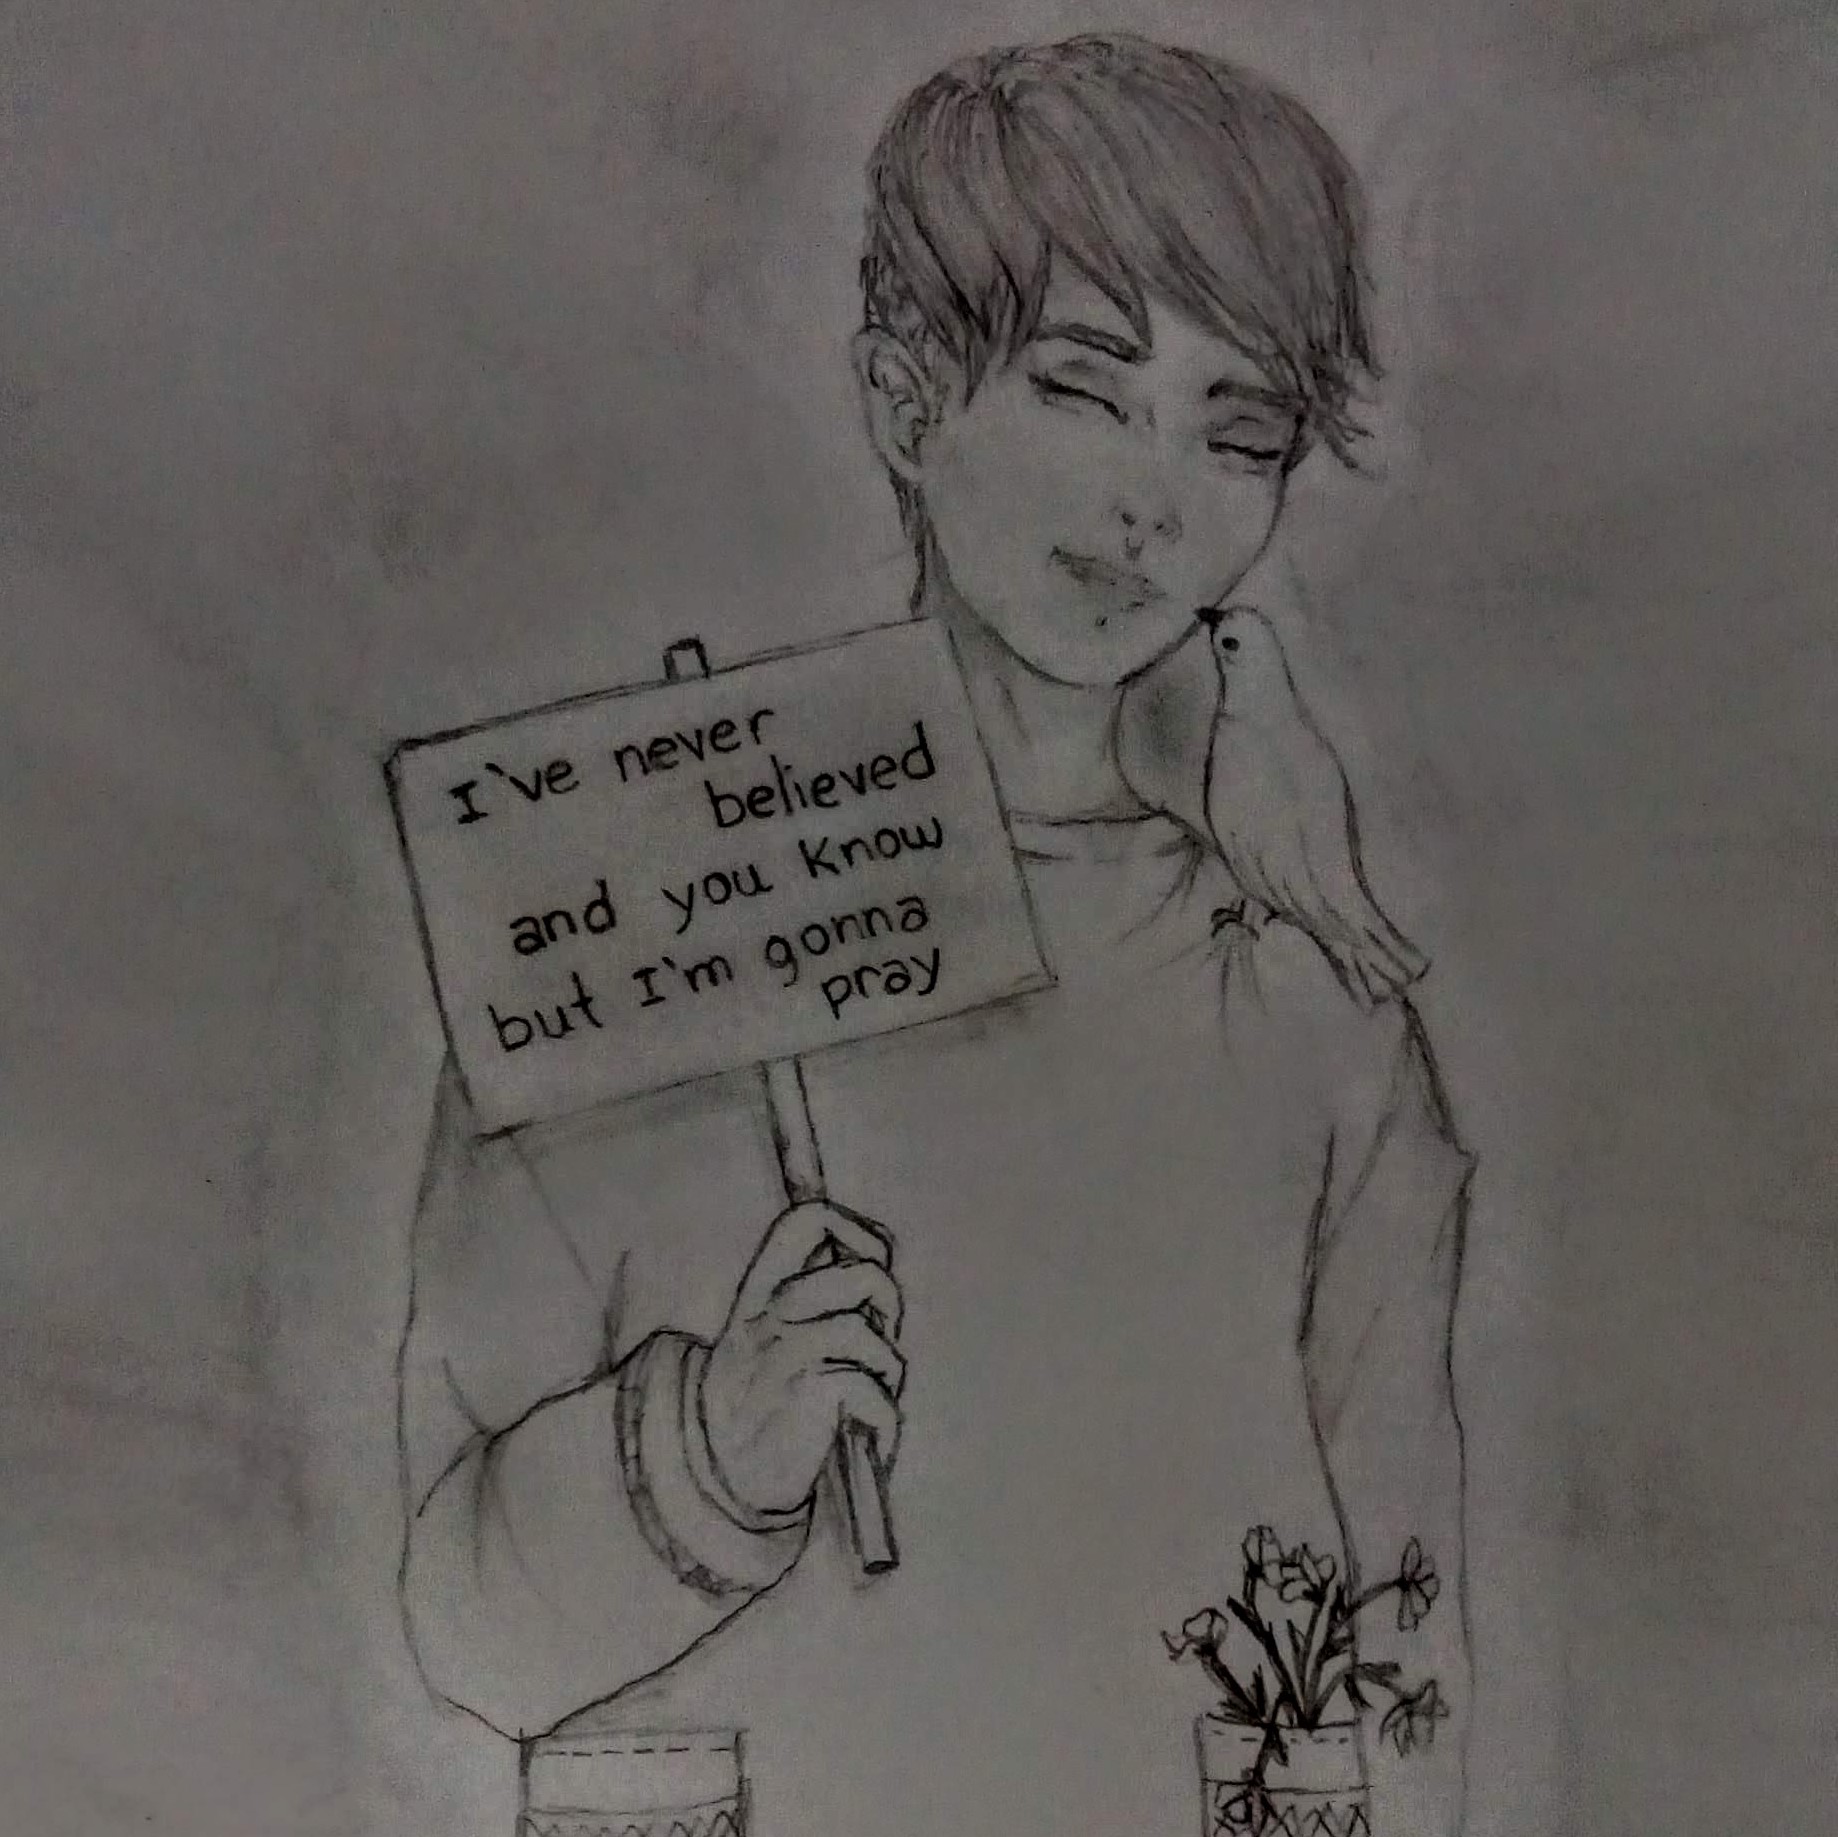 I've never
believed
and you know
but I'm gonna
pray